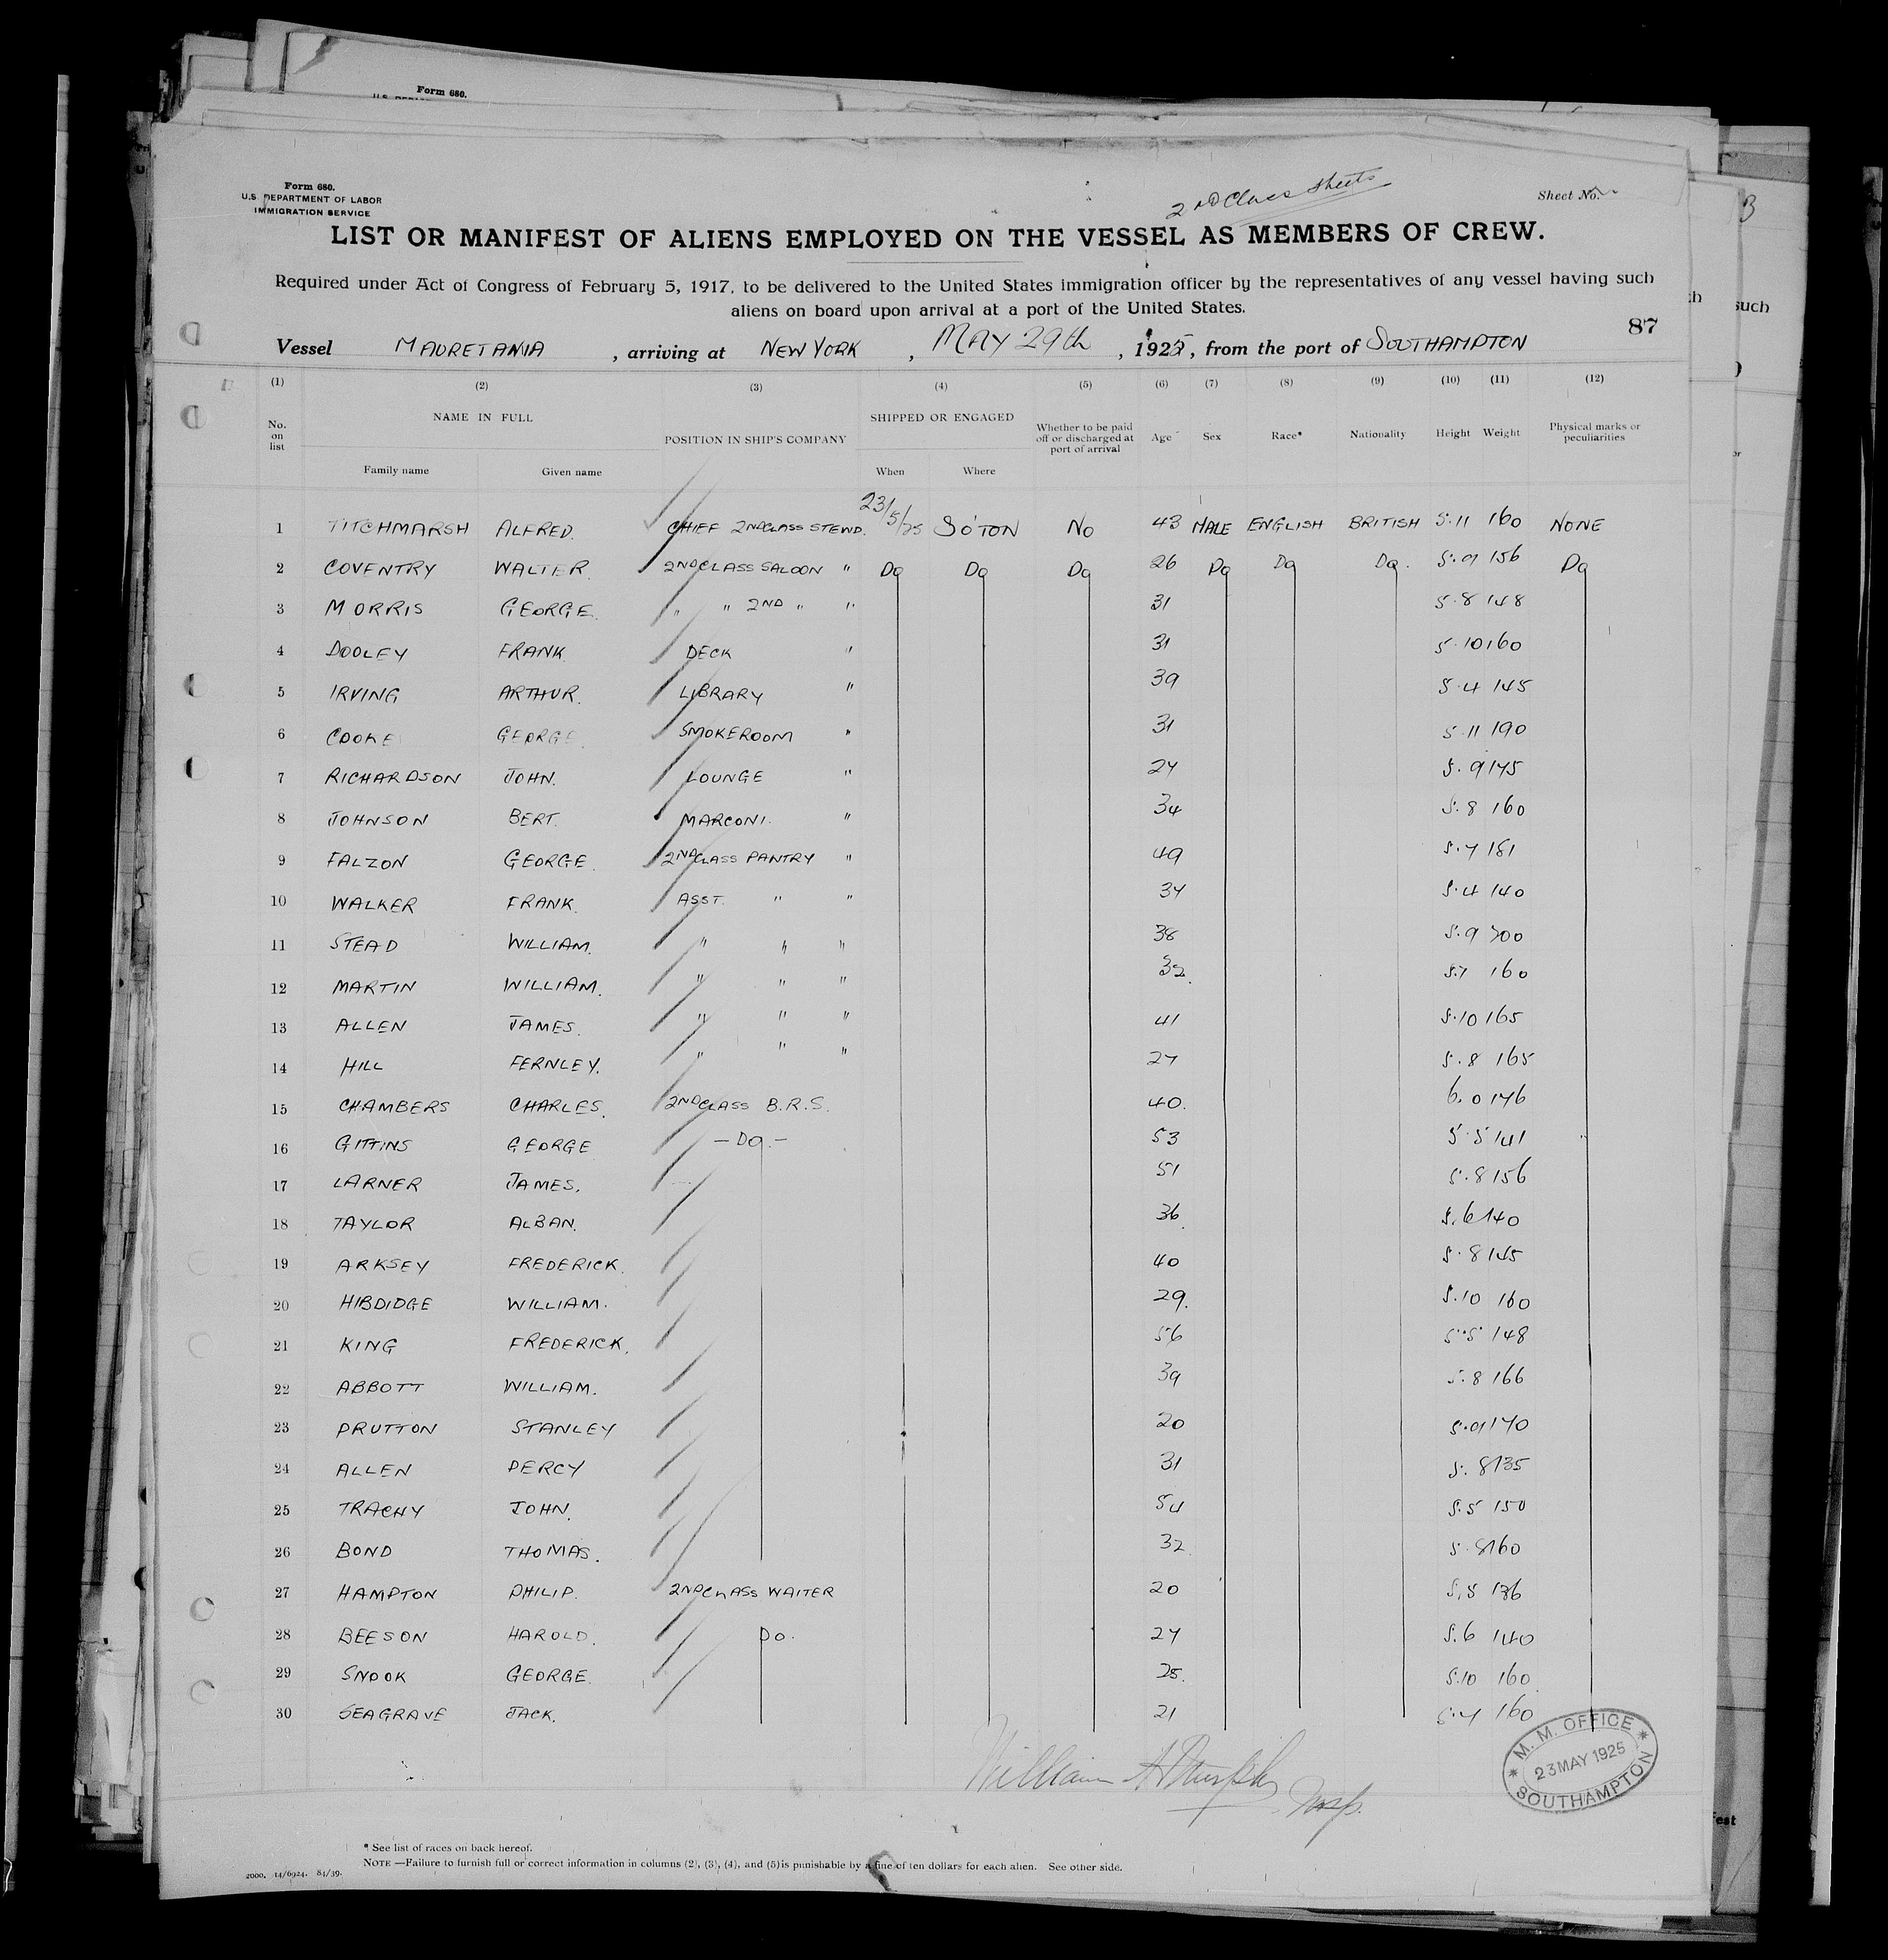 Form 680.
Form 680.
U.S. DEPARTMENT OF LABOR
IMMIGRATION SERVICE
2ND Class Sheets
Sheet No.
3
LIST OR MANIFEST OF ALIENS EMPLOYED ON THE VESSEL AS MEMBERS OF CREW.
Required under Act of Congress of February 5, 1917, to be delivered to the United States immigration officer by the representatives of any vessel having such
aliens on board upon arrival at a port of the United States.
such
87
Vessel MAURETANIA , arriving at NEW YORK , MAY 29th , 1925, from the port of SOUTHAMPTON
(1) (2) (3) (4) (5) (6) (7) (8) (9) (10) (11) (12)
No. on list NAME IN FULL POSITION IN SHIP'S COMPANY SHIPPED OR ENGAGED Whether to be paid off or discharged at port of arrival Age Sex Race* Nationality Height Weight Physical marks or peculiarities
Family name Given name When Where
1 TITCHMARSH ALFRED. CHIEF 2ND CLASS STEWD. 23/5/25 SO'TON NO 43 MALE ENGLISH BRITISH 5.11 160 NONE
2 COVENTRY WALTER. 2ND CLASS SALOON " Do Do Do 26 Do Do Do. 5.9 156 Do
3 MORRIS GEORGE. " " 2ND " " 31 5.8 148
4 DOOLEY FRANK. DECK " 31 5.10 160
5 IRVING ARTHUR. LIBRARY " 39 5.4 145
6 COOKE GEORGE. SMOKEROOM " 31 5.11 190
7 RICHARDSON JOHN. LOUNGE " 27 5.9 175
8 JOHNSON BERT. MARCONI. " 34 5.8 160
9 FALZON GEORGE. 2ND CLASS PANTRY " 49 5.7 181
10 WALKER FRANK. ASST. " " 37 5.4 140
11 STEAD WILLIAM. " " " 38 5.9 200
12 MARTIN WILLIAM. " " " 32. 5.7 160
13 ALLEN JAMES. " " " 41 5.10 165
14 HILL FERNLEY. " " " 27 5.8 165
15 CHAMBERS CHARLES. 2ND CLASS B.R.S. 40. 6.0 176
16 GITTINS GEORGE — Do.— 53 5.5 141
17 LARNER JAMES. 51 5.8 156
18 TAYLOR ALBAN. 36. 5.6 140
19 ARKSEY FREDERICK. 40 5.8 145
20 HIBDIDGE WILLIAM. 29. 5.10 160
21 KING FREDERICK. 56 5.5 148
22 ABBOTT WILLIAM. 39 5.8 166
23 PRUTTON STANLEY 20 5.9 170
24 ALLEN PERCY 31 5.8 135
25 TRACHY JOHN. 54 5.5 150
26 BOND THOMAS. 32. 5.8 160
27 HAMPTON PHILIP. 2ND CLASS WAITER 20 5.5 136
28 BEESON HAROLD. Do. 27 5.6 140
29 SNOOK GEORGE. 25. 5.10 160
30 SEAGRAVE JACK. 21 5.7 160
William H Murphy
M. M. OFFICE
23 MAY 1925
SOUTHAMPTON
* See list of races on back hereof.
NOTE —Failure to furnish full or correct information in columns (2), (3), (4), and (5) is punishable by a fine of ten dollars for each alien. See other side.
2000. 14/6924. 84/39.